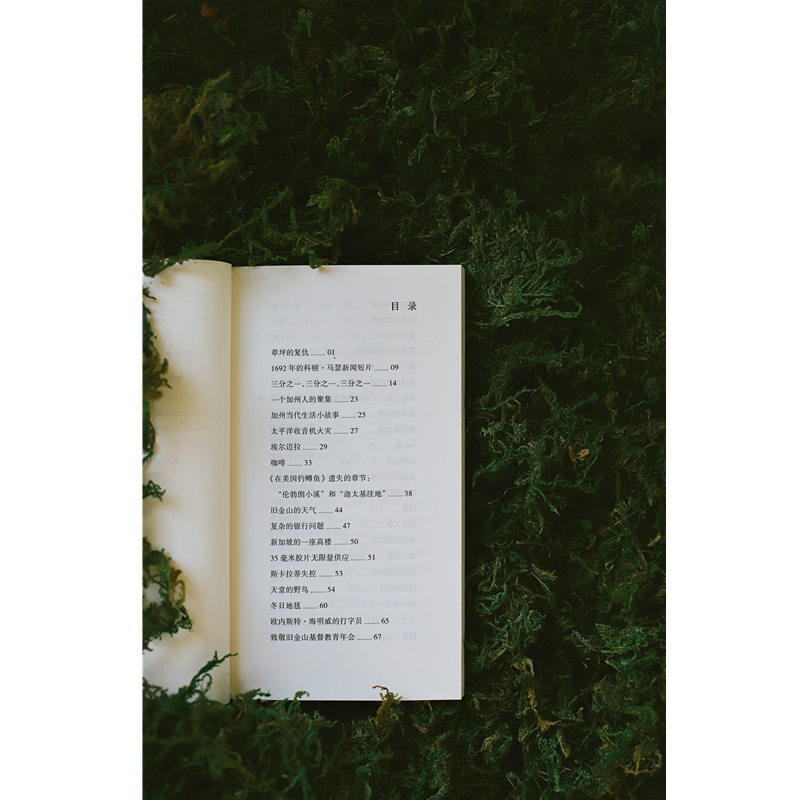 目 录
草坪的复仇 ........ 01
1692 年的科顿·马瑟新闻短片 ........ 09
三分之一，三分之一，三分之一 ........ 14
一个加州人的聚集 ........ 23
加州当代生活小故事 ........ 25
太平洋收音机火灾 ........ 27
埃尔迈拉 ........ 29
咖啡 ........ 33
《在美国钓鳟鱼》遗失的章节：
“伦勃朗小溪”和“迦太基洼地” ........ 38
旧金山的天气 ........ 44
复杂的银行问题 ........ 47
新加坡的一座高楼 ........ 50
35 毫米胶片无限量供应 ........ 51
斯卡拉蒂失控 ........ 53
天堂的野鸟 ........ 54
冬日地毯 ........ 60
欧内斯特·海明威的打字员 ........ 65
致敬旧金山基督教青年会 ........ 67